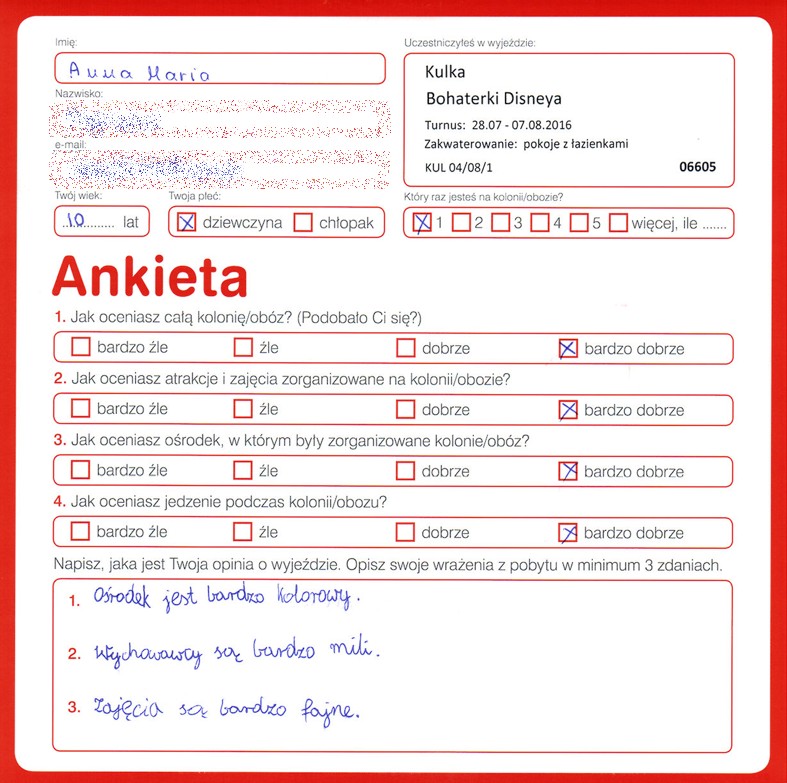 Imię:
Anna Maria
Nazwisko:
e-mail:
Twój wiek:
10 lat
Twoja płeć:
dziewczyna chłopak
Uczestniczyłeś w wyjeździe:
Kulka
Bohaterki Disneya
Turnus: 28.07 - 07.08.2016
Zakwaterowanie: pokoje z łazienkami
KUL 04/08/1 06605
Który raz jesteś na kolonii/obozie?
1 2 3 4 5 więcej, ile .......
Ankieta
1. Jak oceniasz całą kolonię/obóz? (Podobało Ci się?)
bardzo źle źle dobrze bardzo dobrze
2. Jak oceniasz atrakcje i zajęcia zorganizowane na kolonii/obozie?
bardzo źle źle dobrze bardzo dobrze
3. Jak oceniasz ośrodek, w którym były zorganizowane kolonie/obóz?
bardzo źle źle dobrze bardzo dobrze
4. Jak oceniasz jedzenie podczas kolonii/obozu?
bardzo źle źle dobrze bardzo dobrze
Napisz, jaka jest Twoja opinia o wyjeździe. Opisz swoje wrażenia z pobytu w minimum 3 zdaniach.
1. Ośrodek jest bardzo kolorowy.
2. Wychowawcy są bardzo mili.
3. Zajęcia są bardzo fajne.